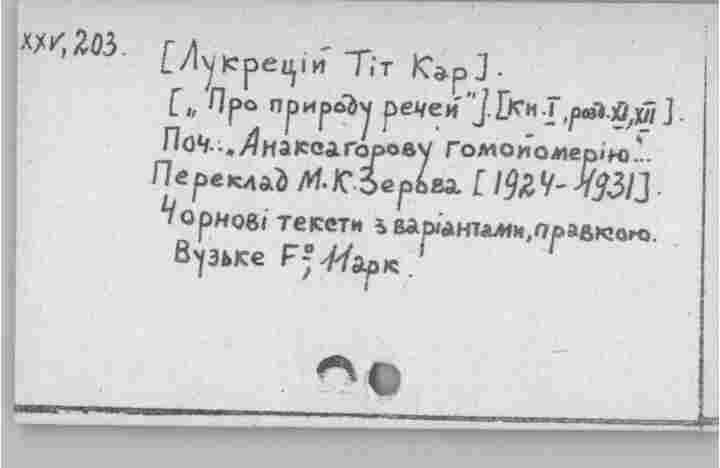 XXV, 203.
[Лукрецій Тіт Кар].
[„Про природу речей"]. [Кн. I, розд. XI, XII].
Поч.: „Анаксагорову гомойомерію..."
Переклад М. К. Зерова [1924-1931].
Чорнові тексти з варіантами, правкою.
Вузьке F°, 11 арк.